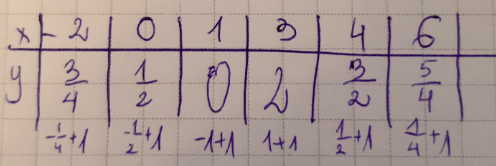 x -2 0 1 3 4 6
y 3/4 1/2 0 2 3/2 5/4
-1/4+1 -1/2+1 -1+1 1+1 1/2+1 1/4+1